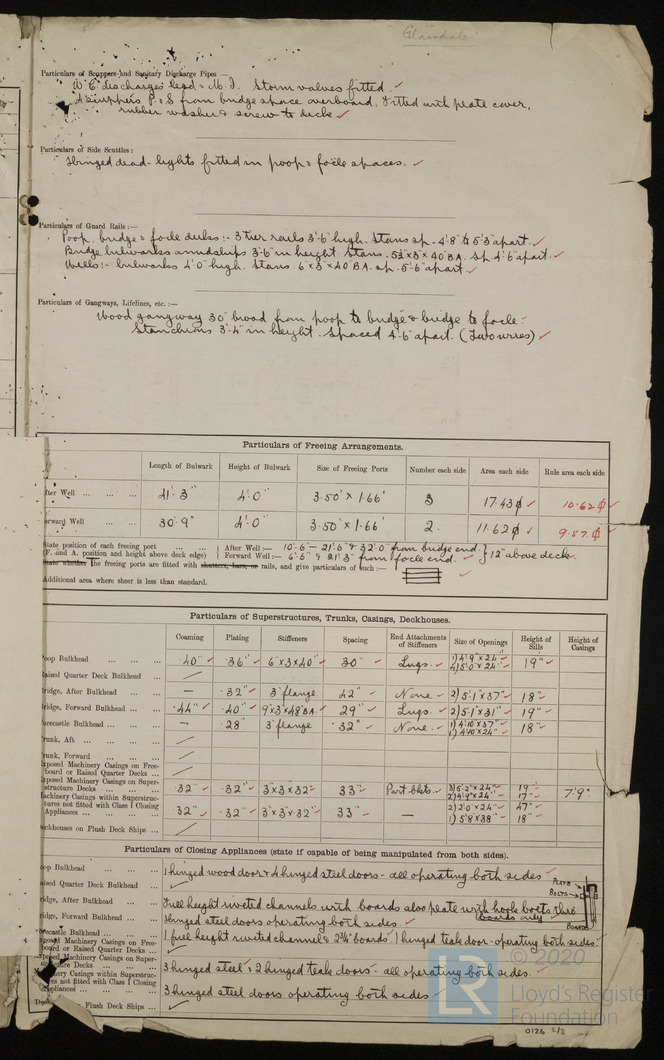 Glaisdale
Particulars of Scuppers and Sanitary Discharge Pipes —
W.C. discharges lead & M.I. Storm valves fitted.
4 scuppers P & S from bridge space overboard. Fitted with plate cover,
rubber washer & screw to deck
Particulars of Side Scuttles:—
Hinged dead-lights fitted in poop & focle spaces.
Particulars of Guard Rails:—
Poop, bridge & focle decks:- 3 tier rails 3'-6" high. Stans sp. 4'-8" to 5'3" apart.
Bridge bulwarks amidships 3'-6" in height Stans. 5½"×3"×.40 B.A. sp. 4'6" apart.
Wells:- bulwarks 4'-0" high. Stans 6"×3"×.40 BA. sp. 5'-6" apart.
Particulars of Gangways, Lifelines, etc.:—
Wood gangway 30" broad from poop to bridge & bridge to focle
Stanchions 3'-4" in height. Spaced 4'-6" apart. (Two wires)
Particulars of Freeing Arrangements.
Length of Bulwark Height of Bulwark Size of Freeing Ports Number each side Area each side Rule area each side
After Well ... ... ... 41'-3" 4'-0" 3.50' × 1.66' 3 17.43 ф 10.62 ф
Forward Well ... ... 30'-9" 4'-0" 3.50' × 1.66' 2. 11.62 ф 9.57 ф
State position of each freeing port ... ... After Well:— 10'-6" — 21'-6" & 32'-0" from bridge end.
(F. and A. position and height above deck edge) Forward Well:— 6'-6" & 21'-3" from focle end. } 12" above deck.
State whether the freeing ports are fitted with shutters, bars, or rails, and give particulars of such:—
Additional area where sheer is less than standard.
Particulars of Superstructures, Trunks, Casings, Deckhouses.
Coaming Plating Stiffeners Spacing End Attachments of Stiffeners Size of Openings Height of Sills Height of Casings
Poop Bulkhead ... ... ... .40" .36" 6"×3"×.40" 30" Lugs. 1) 4'9"×24" 4) 5'0"×24" 19"
Raised Quarter Deck Bulkhead ...
Bridge, After Bulkhead ... ... — .32" 3" flange 42" None 2) 5'1"×37" 18"
Bridge, Forward Bulkhead ... .44" .40" 9"×3"×.48 B.A. 29" Lugs. 2) 5'1"×31" 19"
Forecastle Bulkhead ... ... — .28" 3" flange 32" None. 1) 4'10"×37" 1) 4'10"×24" 18"
Trunk, Aft ... ... ...
Trunk, Forward ... ... ...
Exposed Machinery Casings on Freeboard or Raised Quarter Decks ...
Exposed Machinery Casings on Superstructure Decks ... ... .32" .32" 3"×3"×.32" 33" Part bkts. 3) 5'2"×24" 2) 4'9"×24" 19" 17" 7'9"
Machinery Casings within Superstructures not fitted with Class I Closing Appliances ... ... .32" .32" 3"×3"×.32" 33" — 2) 2'0"×24" 1) 5'8"×38" 47" 18"
Deckhouses on Flush Deck Ships ...
Particulars of Closing Appliances (state if capable of being manipulated from both sides).
Poop Bulkhead ... ... ... 1 hinged wood door & 4 hinged steel doors - all operating both sides
Raised Quarter Deck Bulkhead ...
Bridge, After Bulkhead ... ... Full height riveted channels with boards also plate with hook bolts thro boards only
Bridge, Forward Bulkhead ... Hinged steel doors operating both sides.
PLATE
BOLTS
BOARD
Forecastle Bulkhead ... ... 1 full height riveted channel & 2¾" boards 1 hinged teak door - operating both sides.
Exposed Machinery Casings on Freeboard or Raised Quarter Decks ...
Exposed Machinery Casings on Superstructure Decks ... ... 3 hinged steel, & 2 hinged teak doors - all operating both sides.
Machinery Casings within Superstructures not fitted with Class I Closing Appliances ... ... 3 hinged steel doors operating both sides
Flush Deck Ships ...
© 2020
LR
Lloyd's Register
Foundation
0126 2/2